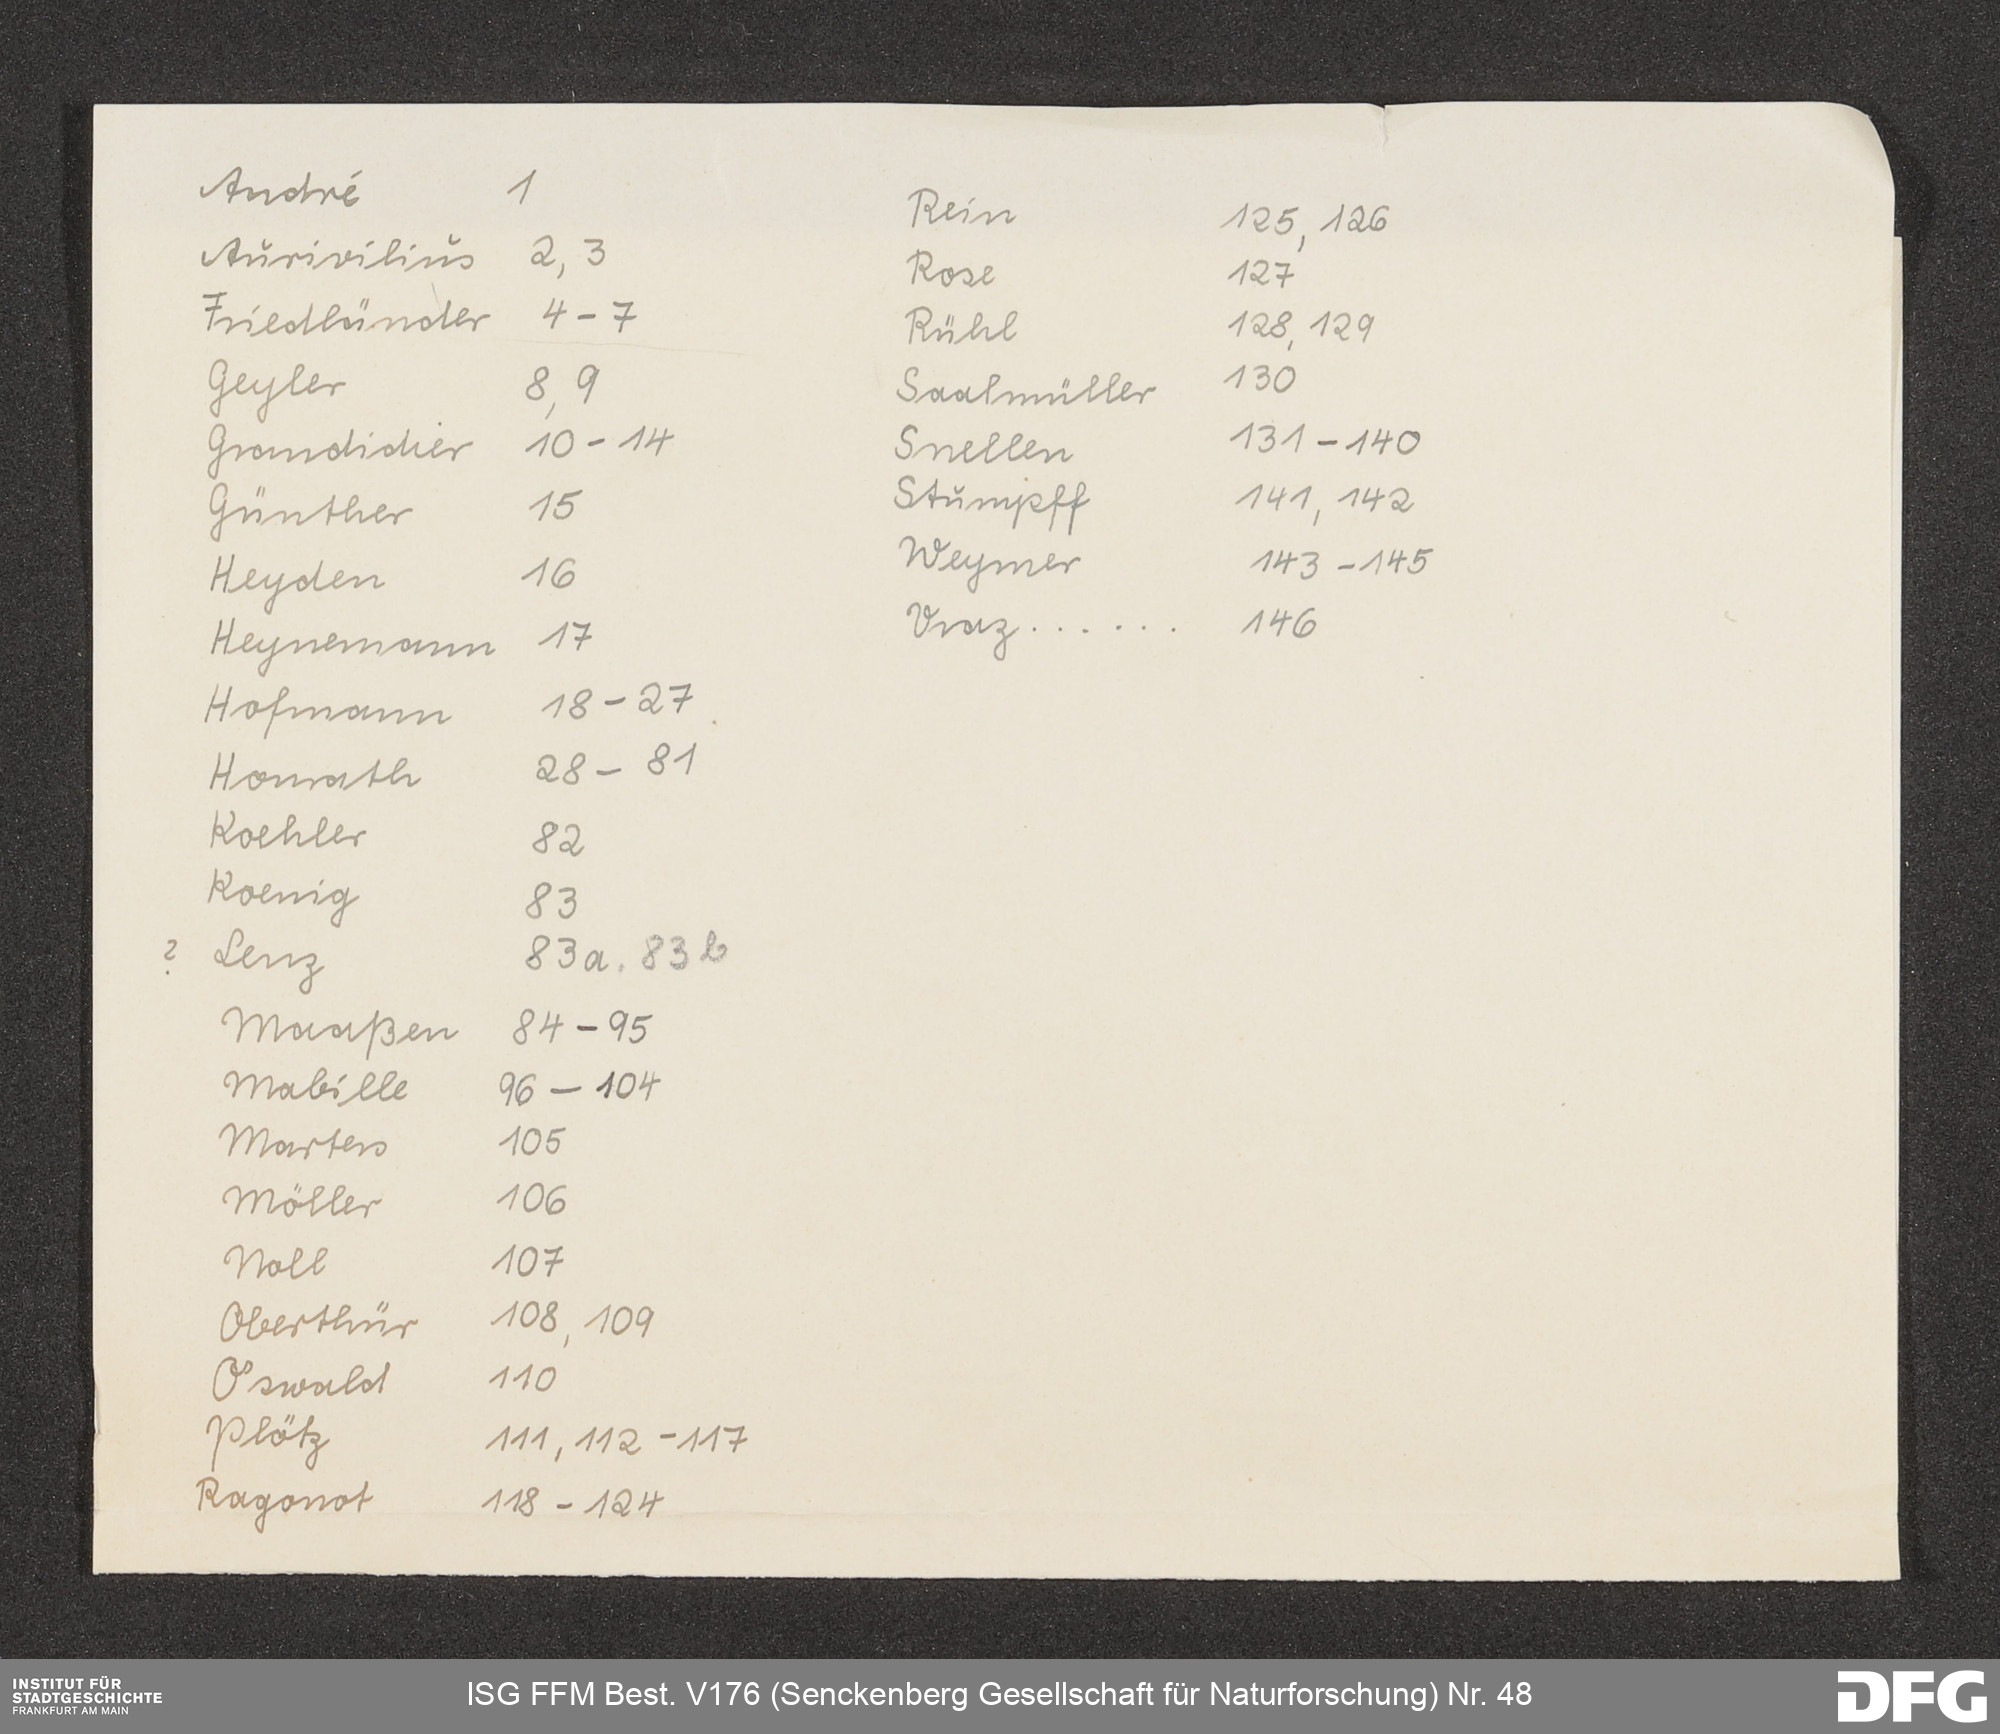 André 1
Aurivilius 2, 3
Friedländer 4 - 7
Geyler 8, 9
Grandidier 10 - 14
Günther 15
Heyden 16
Heynemann 17
Hofmann 18 - 27
Honrath 28 - 81
Koehler 82
Koenig 83
? Lenz 83a. 83b
Maaßen 84 - 95
Mabille 96 - 104
Martens 105
Möller 106
Noll 107
Oberthür 108, 109
Oswald 110
Plötz 111, 112 - 117
Ragonot 118 - 124
Rein 125, 126
Rose 127
Rühl 128, 129
Saalmüller 130
Snellen 131 - 140
Stumpff 141, 142
Weymer 143 - 145
Vraz . . . . . . 146
INSTITUT FÜR
STADTGESCHICHTE
FRANKFURT AM MAIN
ISG FFM Best. V176 (Senckenberg Gesellschaft für Naturforschung) Nr. 48
DFG